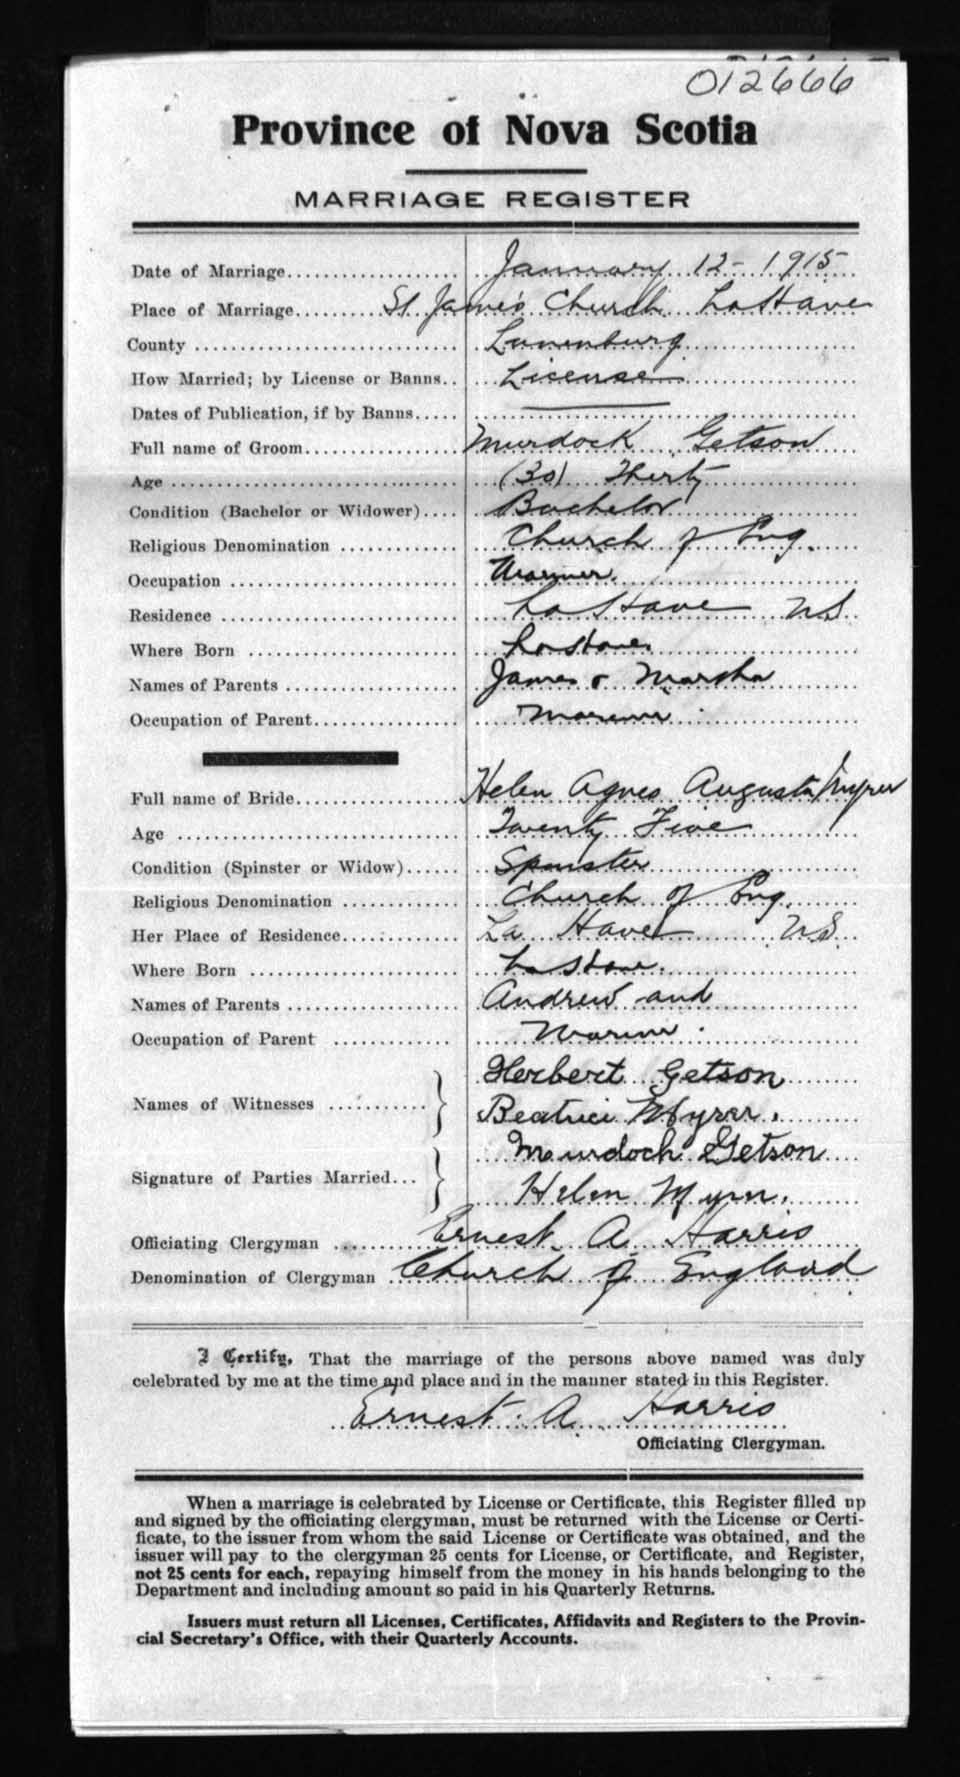 012666
Province of Nova Scotia
MARRIAGE REGISTER
Date of Marriage January 12- 1915
Place of Marriage St James Church LaHave
County Lunenburg
How Married; by License or Banns License
Dates of Publication, if by Banns
Full name of Groom Murdock Getson
Age (30) Therty
Condition (Bachelor or Widower) Bachelor
Religious Denomination Church of Eng.
Occupation Mariner.
Residence LaHave NS.
Where Born LaHave.
Names of Parents James & Marsha
Occupation of Parent Mariner
Full name of Bride Helen Agnes Augusta Myrer
Age Twenty Five
Condition (Spinster or Widow) Spinster
Religious Denomination Church of Eng.
Her Place of Residence La Have NS.
Where Born LaHave.
Names of Parents Andrew and
Occupation of Parent Mariner.
Names of Witnesses Herbert Getson
Beatrice Myrer.
Signature of Parties Married Murdoch Getson
Helen Myrer.
Officiating Clergyman Ernest A Harris
Denomination of Clergyman Church of England
I Certify, That the marriage of the persons above named was duly
celebrated by me at the time and place and in the manner stated in this Register.
Ernest A Harris
Officiating Clergyman.
When a marriage is celebrated by License or Certificate, this Register filled up
and signed by the officiating clergyman, must be returned with the License or Certi-
ficate, to the issuer from whom the said License or Certificate was obtained, and the
issuer will pay to the clergyman 25 cents for License, or Certificate, and Register,
not 25 cents for each, repaying himself from the money in his hands belonging to the
Department and including amount so paid in his Quarterly Returns.
Issuers must return all Licenses, Certificates, Affidavits and Registers to the Provin-
cial Secretary's Office, with their Quarterly Accounts.